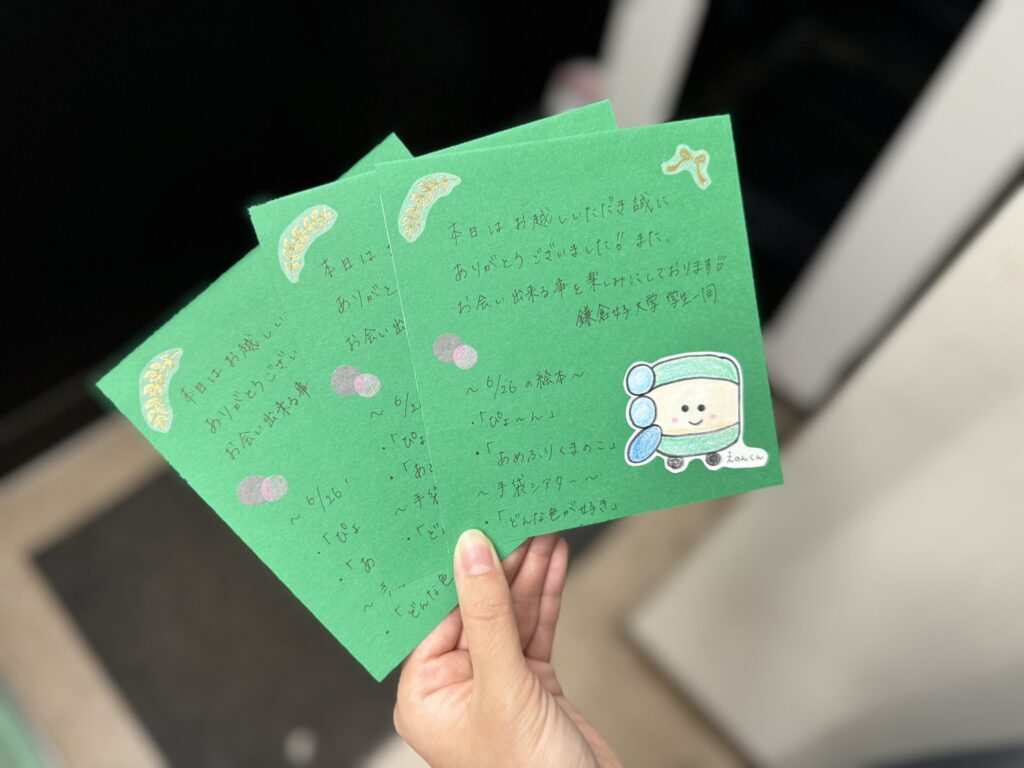 本日はお越しいただき誠に
ありがとうございました!! また、
お会い出来る事を楽しみにしております!!
鎌倉女子大学 学生一同
~ 6/26 の絵本 ~
・「ぴょ~ん」
・「あめふりくまのこ」
~ 手袋シアター ~
・「どんな色が好き」
えのんくん
本日は
ありがと
お会い出
~ 6/2
・「ぴょ
・「あ
~ 手袋
・「ど
本日はお越しい
ありがとうござい
お会い出来る事
~ 6/26
・「ぴょ
・「あ
~
・「どんな色